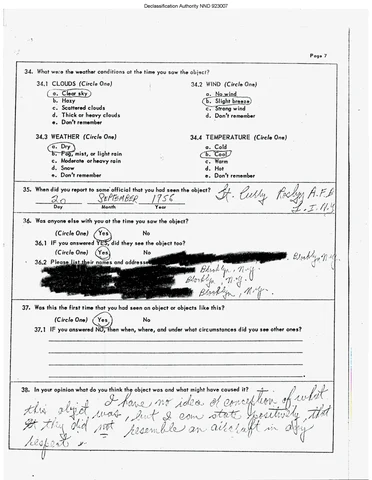 Declassification Authority NND 923007
Page 7
34. What were the weather conditions at the time you saw the object?
34.1 CLOUDS (Circle One) 34.2 WIND (Circle One)
a. Clear sky a. No wind
b. Hazy b. Slight breeze
c. Scattered clouds c. Strong wind
d. Thick or heavy clouds d. Don't remember
e. Don't remember
34.3 WEATHER (Circle One) 34.4 TEMPERATURE (Circle One)
a. Dry a. Cold
b. Fog, mist, or light rain b. Cool
c. Moderate or heavy rain c. Warm
d. Snow d. Hot
e. Don't remember e. Don't remember
35. When did you report to some official that you had seen the object? Lt. A.F.B.
20 SEPTEMBER 1956 L.I. N.Y.
Day Month Year
36. Was anyone else with you at the time you saw the object?
(Circle One) Yes No
36.1 IF you answered YES, did they see the object too?
(Circle One) Yes No
36.2 Please list their names and addresses Brooklyn, N.Y.
Brooklyn, N.Y.
Brooklyn, N.Y.
Brooklyn, N.Y.
37. Was this the first time that you had seen an object or objects like this?
(Circle One) Yes No
37.1 IF you answered NO, then when, where, and under what circumstances did you see other ones?
38. In your opinion what do you think the object was and what might have caused it?
I have no idea of conception of what
this object was, but I can state positively that
they did not resemble an aircraft in any
respect.